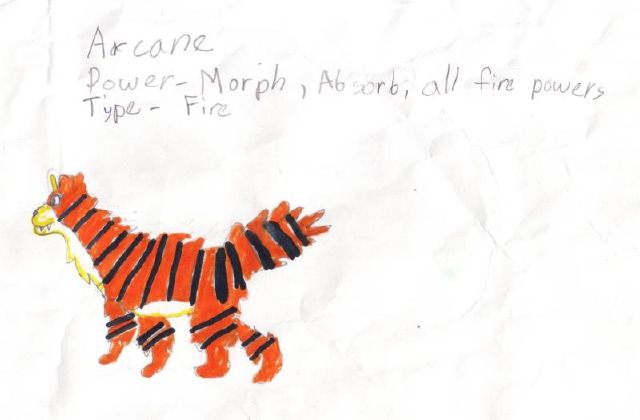 Arcane
Power- Morph, Absorb, all fire powers
Type- Fire